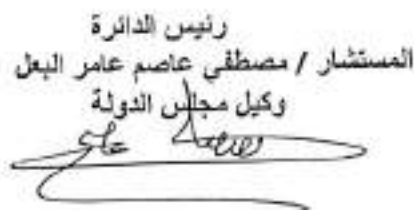 رئيس الدائرة
المستشار / مصطفي عاصم عامر البعل
وكيل مجلس الدولة